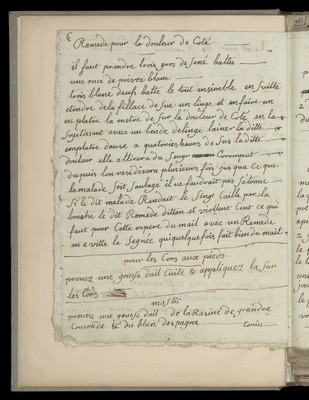 Remede pour la douleur de Coté
il faut prendre trois gros de Sené battu
une once de poivre blanc
trois blanc deufs battu le tout ensemble en Suitte
etendre dela fillace de sus un linge et en faire un
en platre la metre de sur la douleur de Coté en la
Sujetissant avec un bende de linge laiser la ditte
emplatre dause a quatorsieheurs de Sus la ditte
douleur elle attirera du Sangt Corompeut
du puis lon vers dervera plusieurs fois jus que Ce que
le malade Soit Soulagé il ne faudrait pas Setonne
Si le dit malade Randait le Singt Caillé par la
bouche le dit Remede ditton et viollent Cent ce qui
faut pour Cette espere du mail avec un Remede
on e vitte la Segnée qui quelque fois fait bien du mail
pour les Cors aux pieds
prenez une gousse dail Cuite & appliquez la Sur
les Cors
mastic
prenez une gousse dail de la Rasine de grandre
Consolide & du blanc despagne